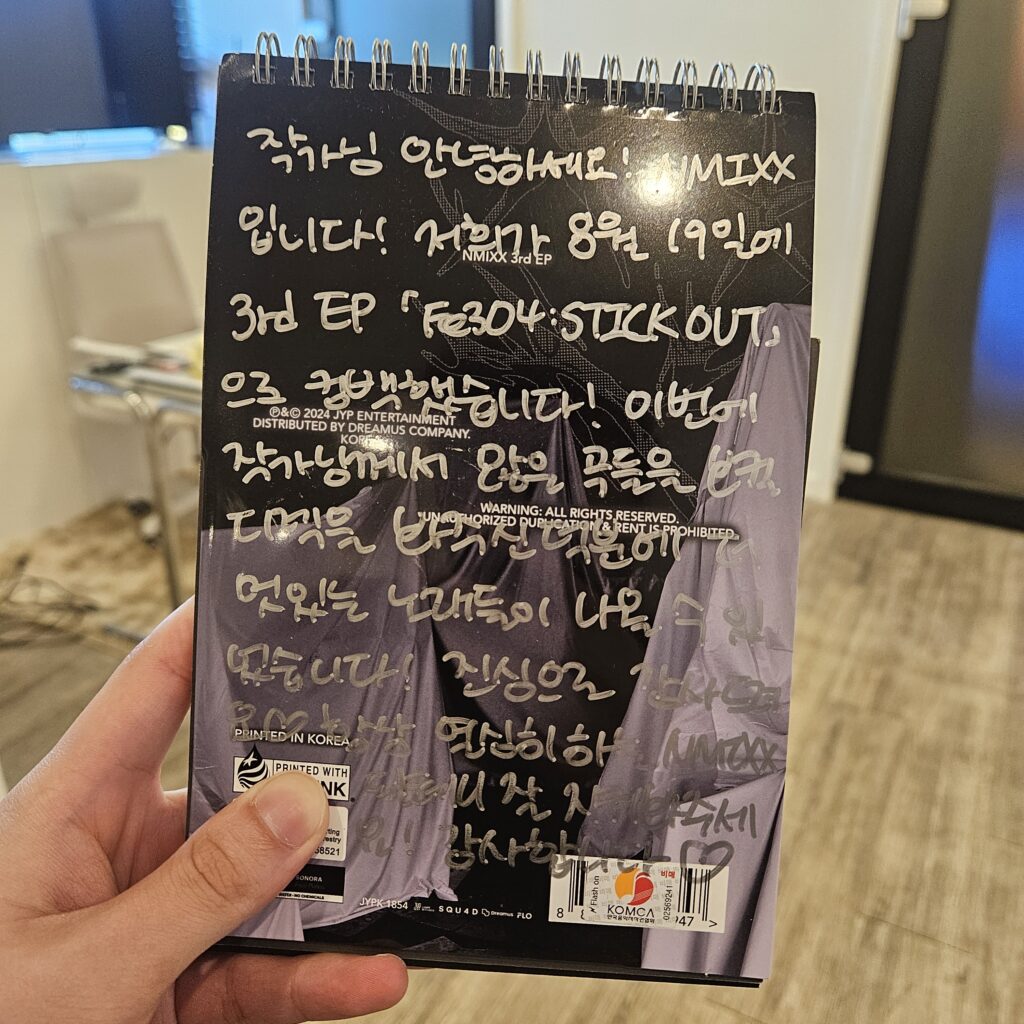 작가님 안녕하세요! NMIXX
입니다! 저희가 8월 19일에
NMIXX 3rd EP
3rd EP 「Fe3O4:STICK OUT」
으로 컴백했습니다! 이번에
℗&© 2024 JYP ENTERTAINMENT
DISTRIBUTED BY DREAMUS COMPANY.
KOREA
작가님께서 많은 곡들을 보컬
WARNING: ALL RIGHTS RESERVED.
UNAUTHORIZED DUPLICATION & RENT IS PROHIBITED.
디렉을 봐주신 덕분에 더
멋있는 노래들이 나올 수 있
었습니다! 진심으로 감사드려
요♡ 항상 열심히 하는 NMIXX
PRINTED IN KOREA
PRINTED WITH
INK
될테니 잘 지켜봐주세
요! 감사합니다♡
58521
SONORA
JYPK 1854
SQU4D
Dreamus
FLO
Flash on
비매
KOMCA
한국음악저작권협회
02569241
8
947 >